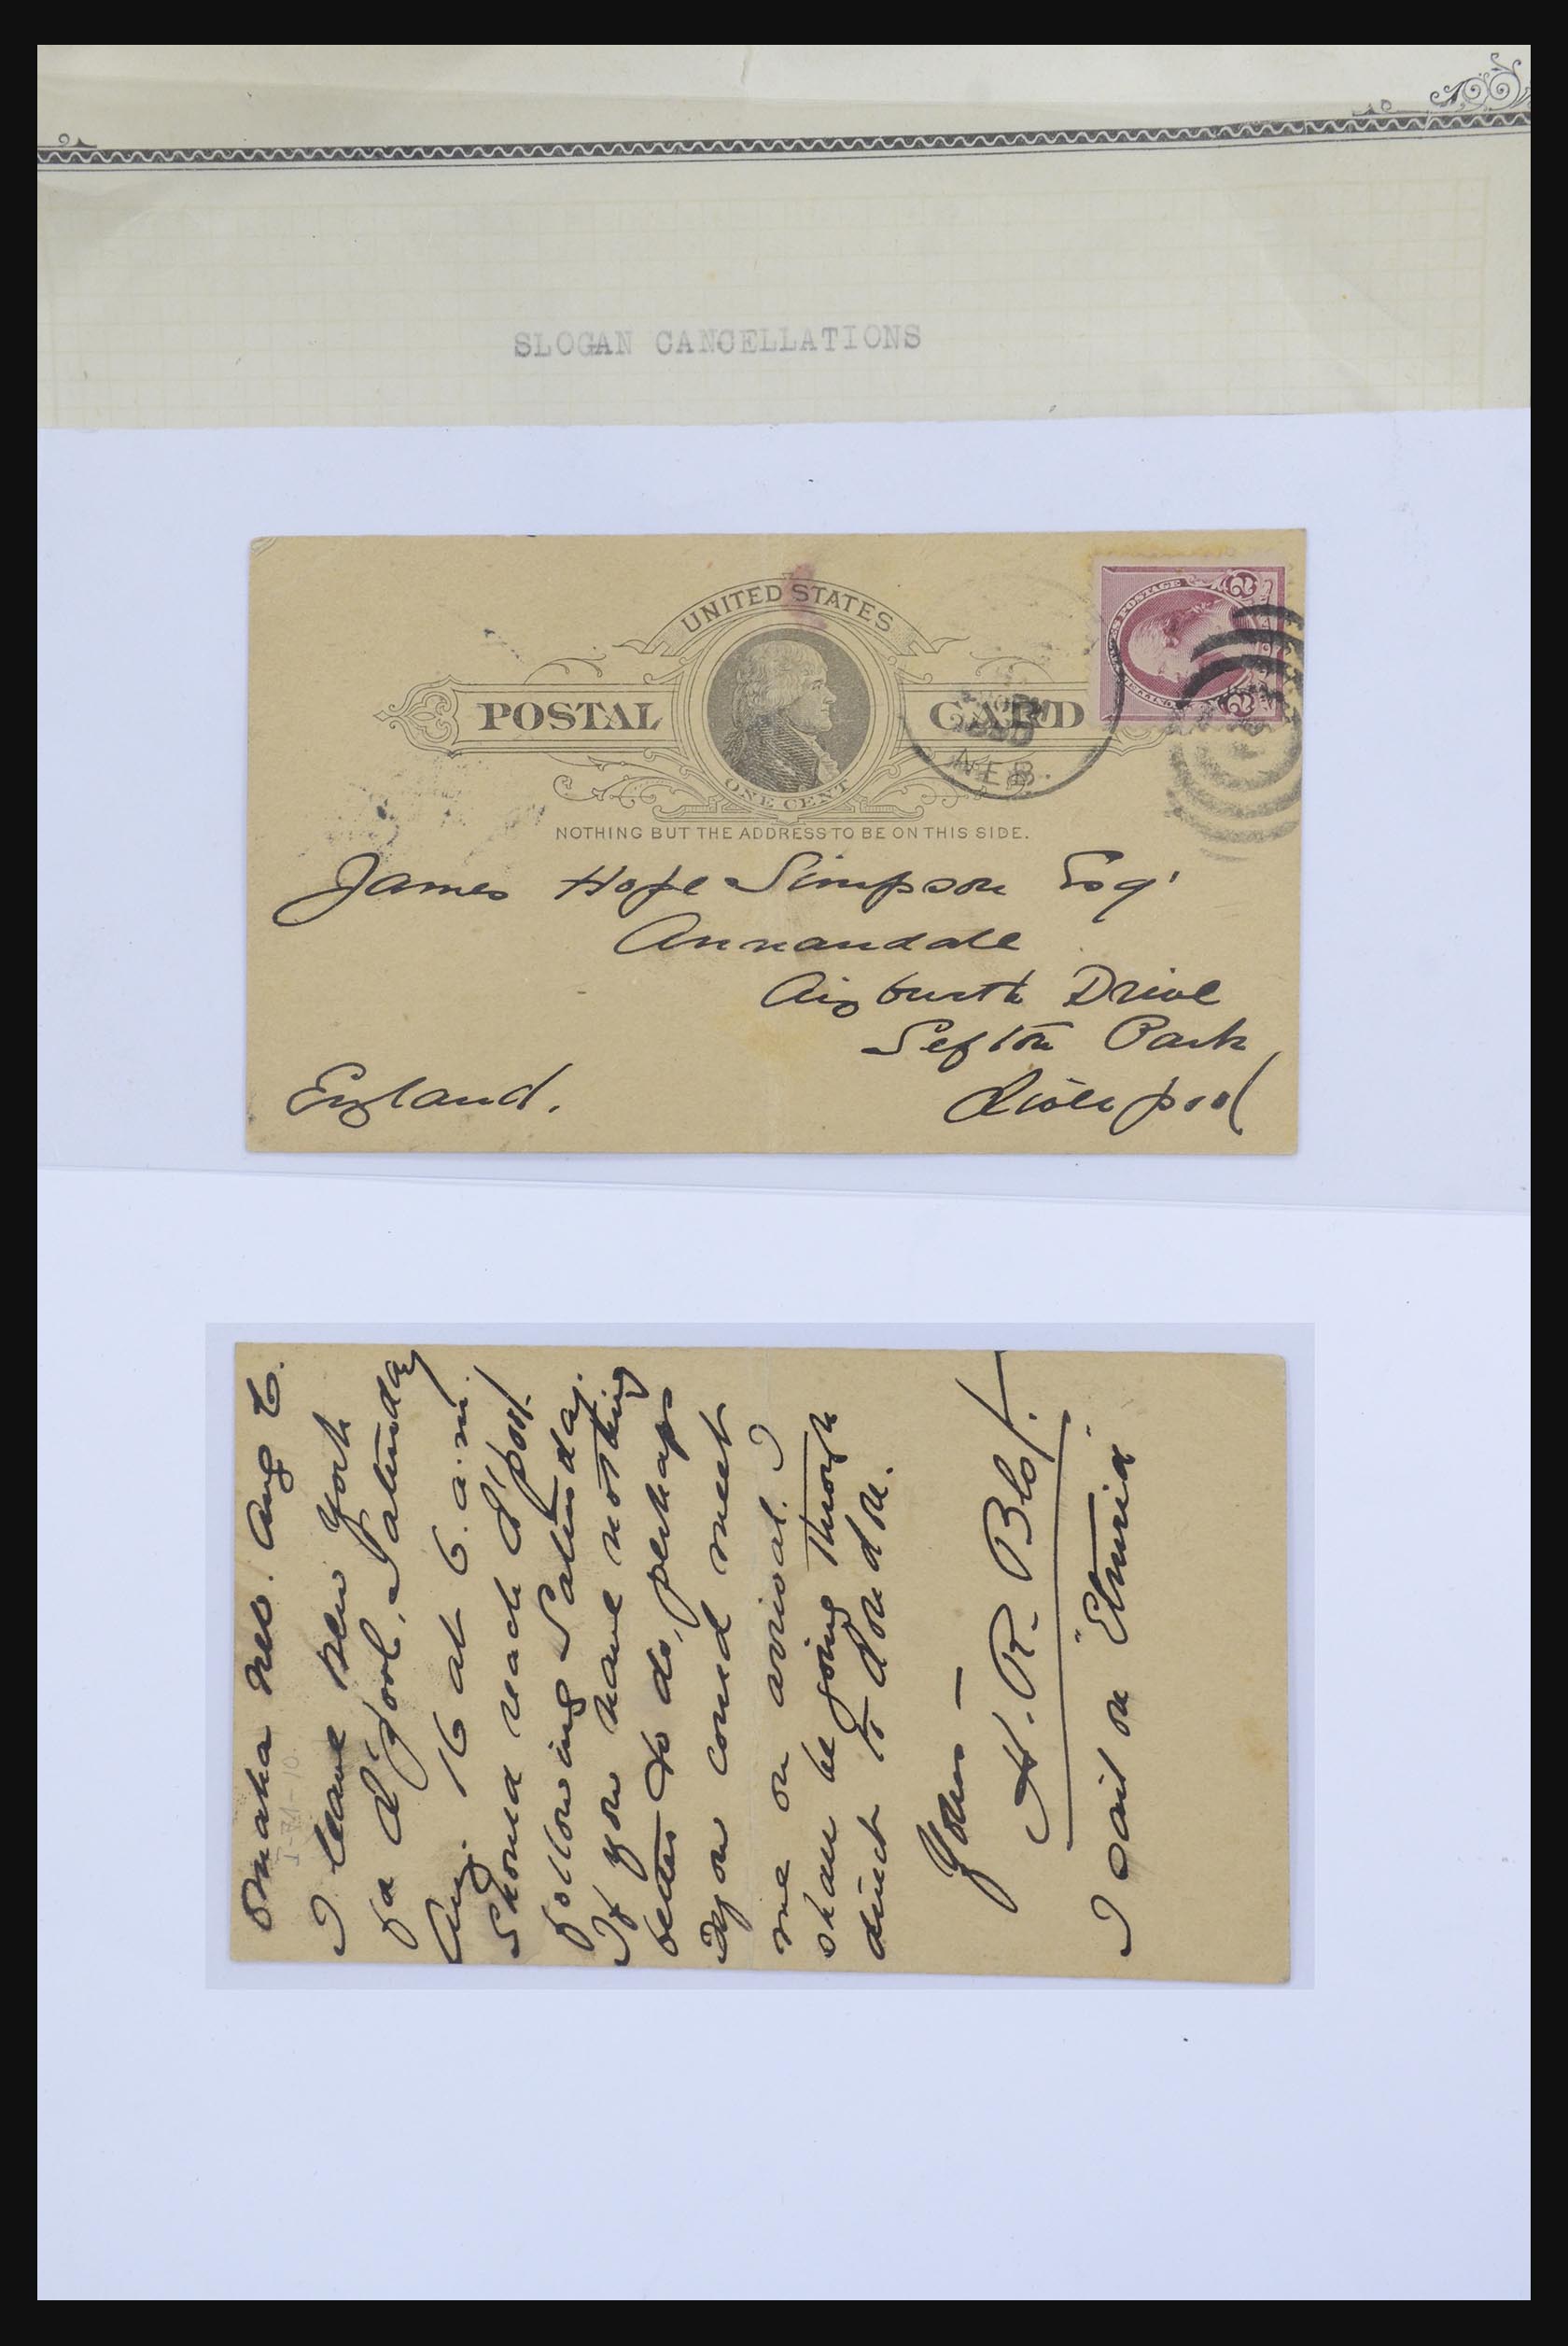 SLOGAN CANCELLATIONS
UNITED STATES
POSTAL CARD
ONE CENT
NEB.
NOTHING BUT THE ADDRESS TO BE ON THIS SIDE.
James Hope Simpson Esqr
Annandale
Aigburth Drive
Sefton Park
Liverpool
England.
Omaha Neb. Aug 6.
I leave New York
for L'pool, Saturday
Aug. 16 at 6 a.m.
Should reach L'pool
following Saturday.
If you have nothing
better to do, perhaps
you could meet
me on arrival. I
shall be going through
direct to London.
Yours —
H. R.
I sail on "Etruria"